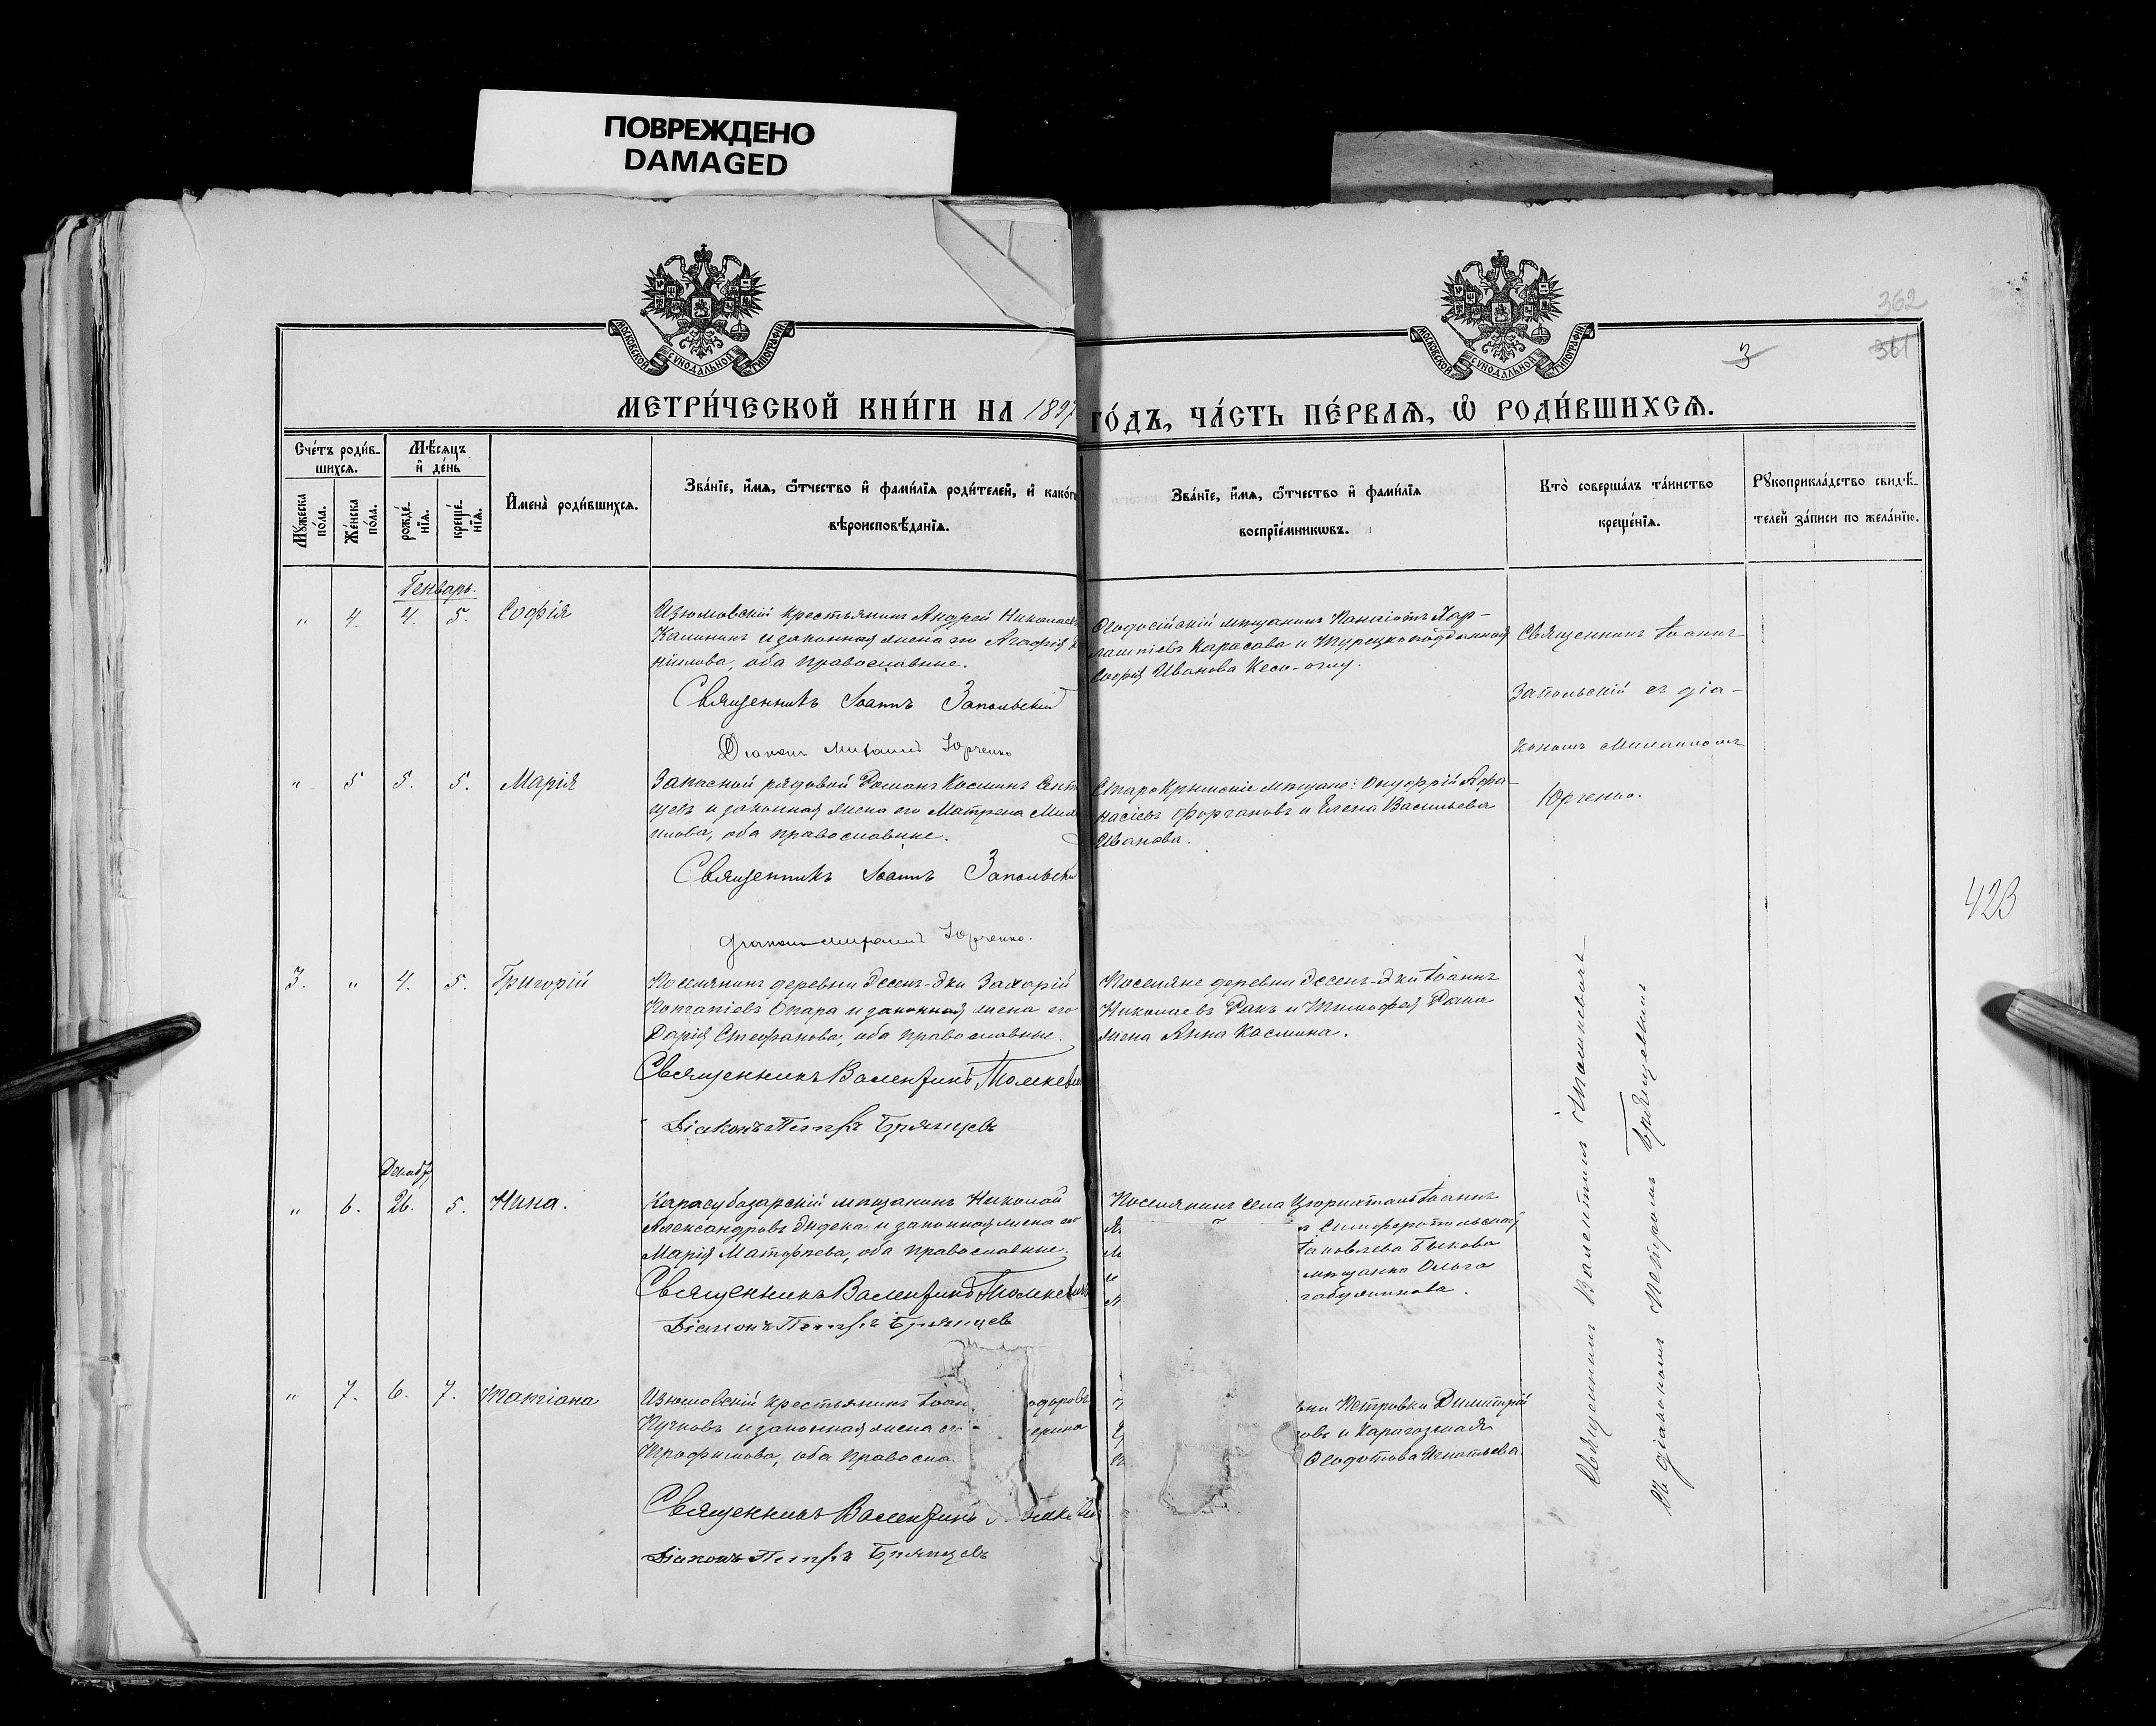 ПОВРЕЖДЕНО
DAMAGED
МОСКОВСКОЙ СѴНОДАЛЬНОЙ ТИПОГРАФІИ
МОСКОВСКОЙ СѴНОДАЛЬНОЙ ТИПОГРАФІИ
362
361
3
МЕТРИ́ЧЕСКОЙ КНИ́ГИ НА 1897
ГО́ДЪ, ЧА́СТЬ ПЕ́РВАѦ, Ѡ҆ РОДИ́ВШИХСѦ.
Сче́тъ роди́в-
шихсѧ.
Мꙋжеска по́ла.
Же́нска по́ла.
Мѣ́сѧцъ
и҆ де́нь
рожде́-
нїѧ.
креще́-
нїѧ.
И҆мена̀ роди́вшихсѧ.
Зва́нїе, и҆́мѧ, ѻ҆́тчество и҆ фами́лїѧ роди́телей, и҆ како́гѡ
вѣроисповѣ́данїѧ.
Зва́нїе, и҆́мѧ, ѻ҆́тчество и҆ фами́лїѧ
воспрїе́мникѡвъ.
Кто̀ соверша́лъ та́инство
креще́нїѧ.
Рꙋкоприкла́дство свидѣ́-
телей за́писи по жела́нїю.
Генварь.
" 4. 4. 5. Софія
Изюмовскій крестьянинъ Андрей Николаевъ
Калининъ и законная жена его Агафія
нилова, оба православные.
Священникъ Іоаннъ Запольскій
Діаконъ Михаилъ Юрченко
Ѳеодосійскій мѣщанинъ Панаіотъ Хар-
лампіевъ Карасава и Турецко подданная
Софія Иванова Кесе-оглу.
Священникъ Іоаннъ
Запольскій съ діа-
кономъ Михаиломъ
Юрченко.
" 5 5. 5. Марія
Запасной рядовой Романъ Косминъ
цевъ и законная жена его Матрена
илова, оба православные.
Священникъ Іоаннъ Запольскій
Діаконъ Михаилъ Юрченко.
Старокрымскіе мѣщане: Онуфрій Афа-
насіевъ Форгановъ и Елена Васильева
Иванова.
423
3. " 4. 5. Григорій
Поселянинъ деревни Эссенъ-Эки Захарій
Опара и законная жена его
Дарія Стефанова, оба православные.
Священникъ Валентинъ Томкевичъ
Діаконъ Петръ Брянцевъ
Поселяне деревни Эссенъ-Эки Іоаннъ
Николаевъ Ракъ и Тимофея Рака
жена Анна Касмина.
Священникъ Валентинъ Томкевичъ
съ діакономъ Петромъ Брянцевымъ
Декабрь
" 6. 26. 5. Нина.
Карасубазарскій мѣщанинъ Николай
Александровъ и законная жена его
Марія Матѳеева, оба православные.
Священникъ Валентинъ Томкевичъ
Діаконъ Петръ Брянцев
Поселянинъ села Цюрихталь Іоаннъ
и Симферопольской
Іаковлева Быкова
мѣщанка Ольга
" 7. 6. 7. Татіана
Изюмовскій крестьянинъ Іоан одоровъ
Пучковъ и законная жена ег ерина
Трофимова, оба правосла
Священникъ Валентинъ
Діаконъ Петръ Брянцевъ
Петровки Димитрій
овъ и Карагозская
Ѳедотова Игнатьева